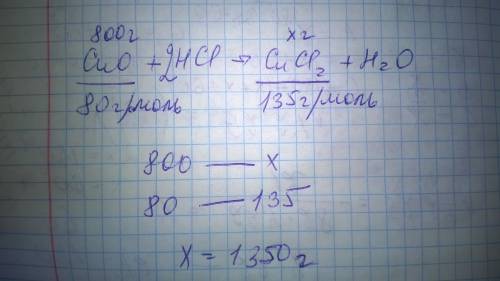 800г хг
CuO + 2HCl → CuCl₂ + H₂O
80г/моль 135г/моль
800 — х
80 — 135
х = 1350г